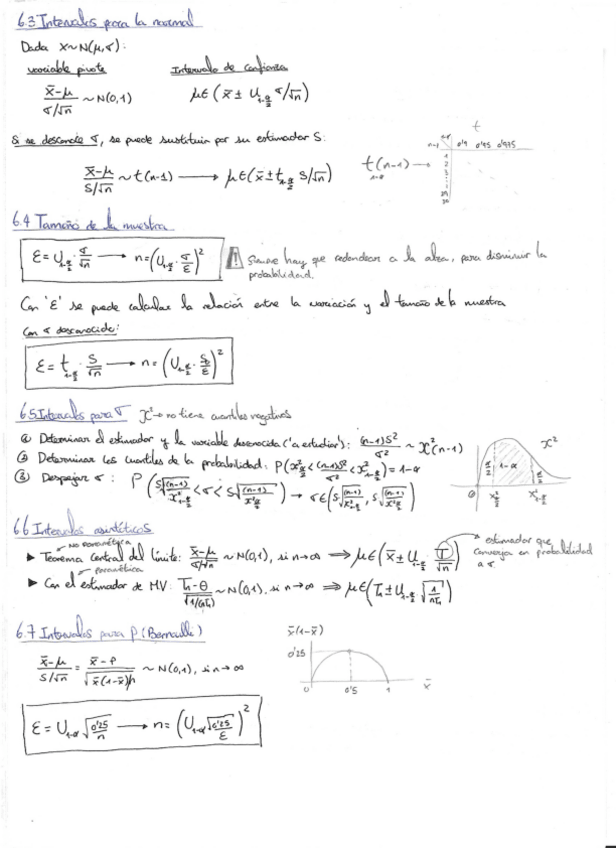 6.3 Intervalos para la normal
Dada X~N(μ,σ):
variable pivote Intervalo de confianza
(x̄-μ)/(σ/√n) ~ N(0,1) μ∈(x̄ ± U_{1-α/2} σ/√n)
Si se desconoce σ, se puede sustituir por su estimador S:
(x̄-μ)/(S/√n) ~ t(n-1) → μ∈(x̄ ± t_{1-α/2} S/√n)
t(n-1) →
1-α
t
n-1 0'9 0'95 0'975
1
2
3
29
30
6.4 Tamaño de la muestra
ε = U_{1-α/2} · σ/√n → n = (U_{1-α/2} · σ/ε)²
Siempre hay que redondear a la alza, para disminuir la
probabilidad.
Con 'ε' se puede calcular la relación entre la variación y el tamaño de la muestra
Con σ desconocida:
ε = t_{1-α/2} · S/√n → n = (U_{1-α/2} · S/ε)²
6.5 Intervalos para σ X² → no tiene cuantiles negativos
① Determinar el estimador y la variable desconocida ('a estudiar'): (n-1)S²/σ² ~ X²(n-1)
② Determinar los cuantiles de la probabilidad: P(X²_{α/2} < (n-1)S²/σ² < X²_{1-α/2}) = 1-α
③ Despejar σ: P(S√((n-1)/X²_{1-α/2}) < σ < S√((n-1)/X²_{α/2})) → σ∈(S√((n-1)/X²_{1-α/2}), S√((n-1)/X²_{α/2}))
X²
α/2 1-α α/2
0 X²_{α/2} X²_{1-α/2}
6.6 Intervalos asintóticos
→ No paramétrica
► Teorema Central del Límite: (x̄-μ)/(σ/√n) ~ N(0,1), si n→∞ ⟹ μ∈(x̄ ± U_{1-α/2} · T/√n)
estimador que
converja en probabilidad
a σ
→ paramétrica
► Con el estimador de MV: (T₁-θ)/√(1/(nI₁)) ~ N(0,1), si n→∞ ⟹ μ∈(T₁ ± U_{1-α/2} √(1/(nI₁)))
6.7 Intervalos para P (Bernoulli)
(x̄-μ)/(S/√n) = (x̄-P)/√(x̄(1-x̄)/n) ~ N(0,1), si n→∞
x̄(1-x̄)
0'25
0 0'5 1 x̄
ε = U_{1-α} √(0'25/n) → n = (U_{1-α} √0'25/ε)²